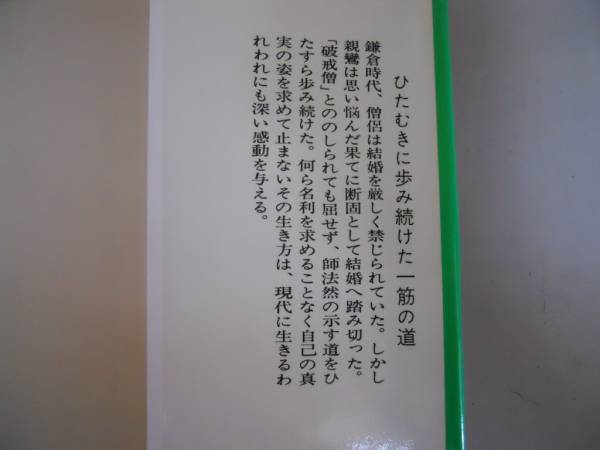 ひたむきに歩み続けた一筋の道
鎌倉時代、僧侶は結婚を厳しく禁じられていた。しかし
親鸞は思い悩んだ果てに断固として結婚へ踏み切った。
「破戒僧」とののしられても屈せず、師法然の示す道をひ
たすら歩み続けた。何ら名利を求めることなく自己の真
実の姿を求めて止まないその生き方は、現代に生きるわ
れわれにも深い感動を与える。